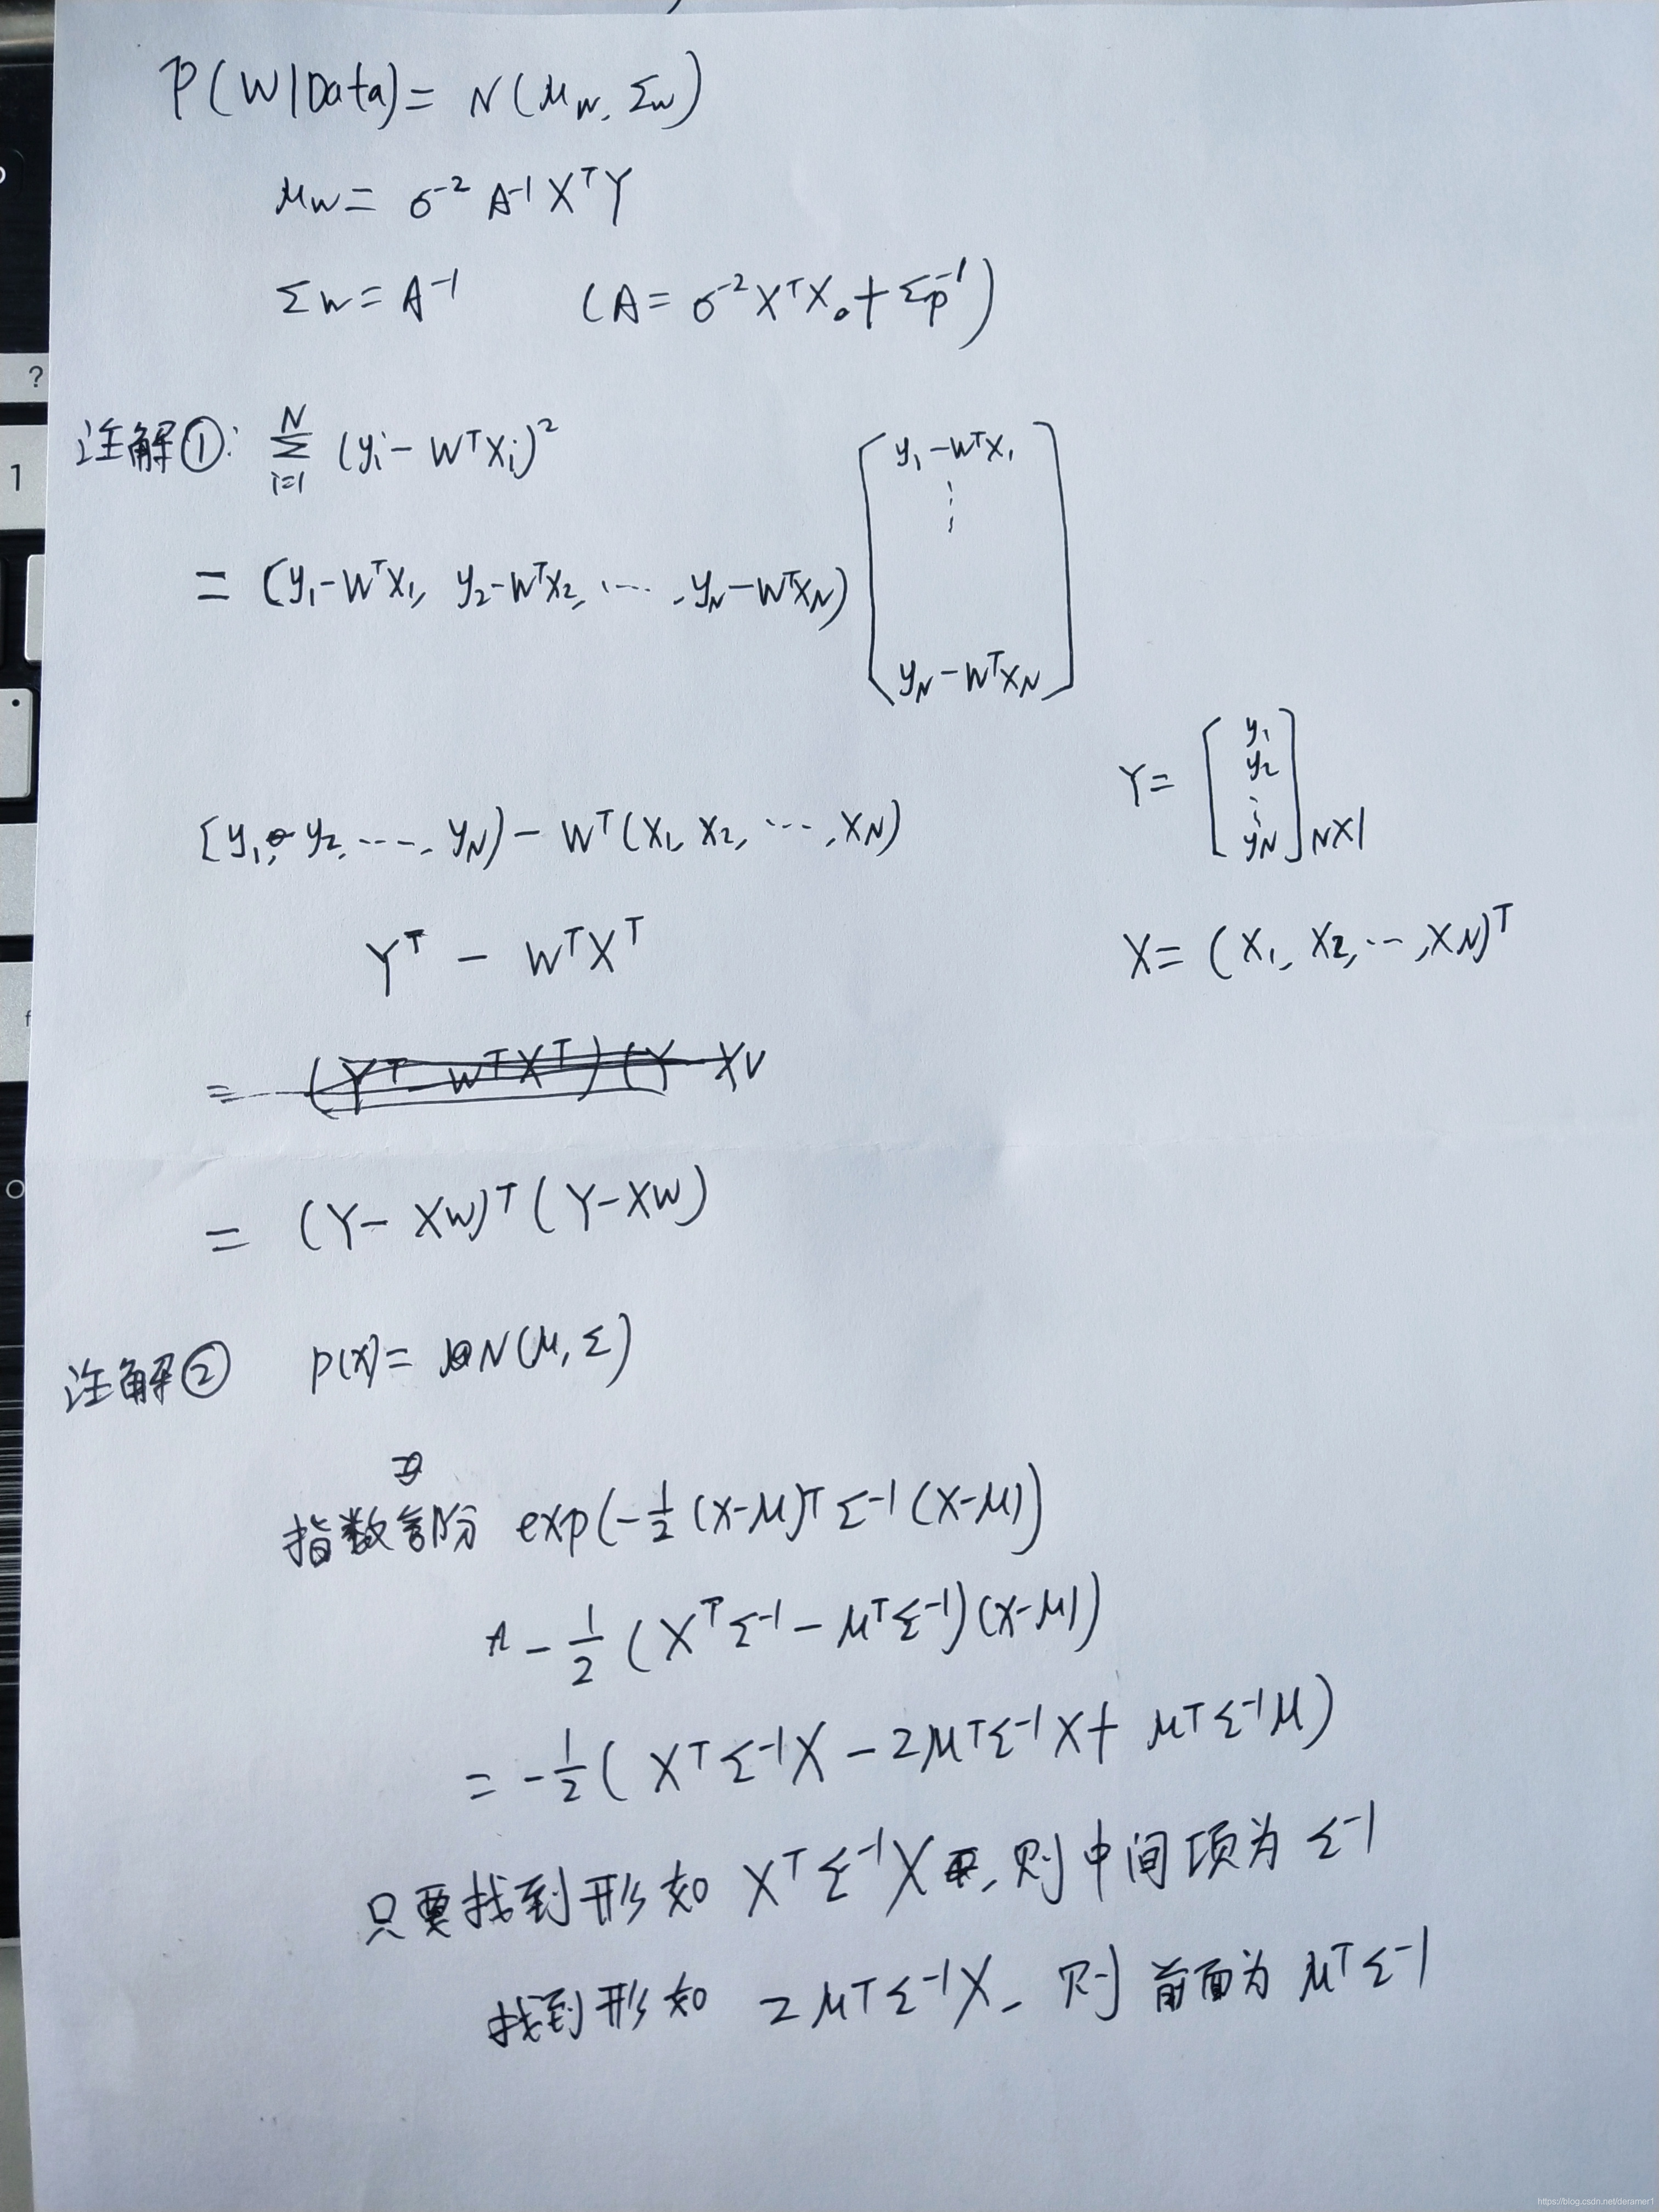 P(W|Data) = N(μ_W, Σ_W)
μ_W = σ⁻² A⁻¹ XᵀY
Σ_W = A⁻¹  (A = σ⁻² XᵀX + Σ_p⁻¹)
注解①: Σ_{i=1}^{N} (y_i - WᵀX_i)²
= (y₁-WᵀX₁, y₂-WᵀX₂, ⋯, y_N-WᵀX_N) [y₁-WᵀX₁ ⋮ y_N-WᵀX_N]
[y₁, y₂, ⋯, y_N) - Wᵀ(X₁, X₂, ⋯, X_N)
Y = [y₁ y₂ ⋮ y_N]_{N×1}
Yᵀ - WᵀXᵀ
X = (X₁, X₂, ⋯, X_N)ᵀ
= (Yᵀ - WᵀXᵀ)(Y - X
= (Y - XW)ᵀ(Y - XW)
注解② p(x) = N(μ, Σ)
指数部份 exp(-½(X-μ)ᵀΣ⁻¹(X-μ))
-½(XᵀΣ⁻¹ - μᵀΣ⁻¹)(X-μ)
= -½(XᵀΣ⁻¹X - 2μᵀΣ⁻¹X + μᵀΣ⁻¹μ)
只要找到形如 XᵀΣ⁻¹X, 则中间项为 Σ⁻¹
找到形如 2μᵀΣ⁻¹X, 则前面为 μᵀΣ⁻¹
?
1
https://blog.csdn.net/deramer1